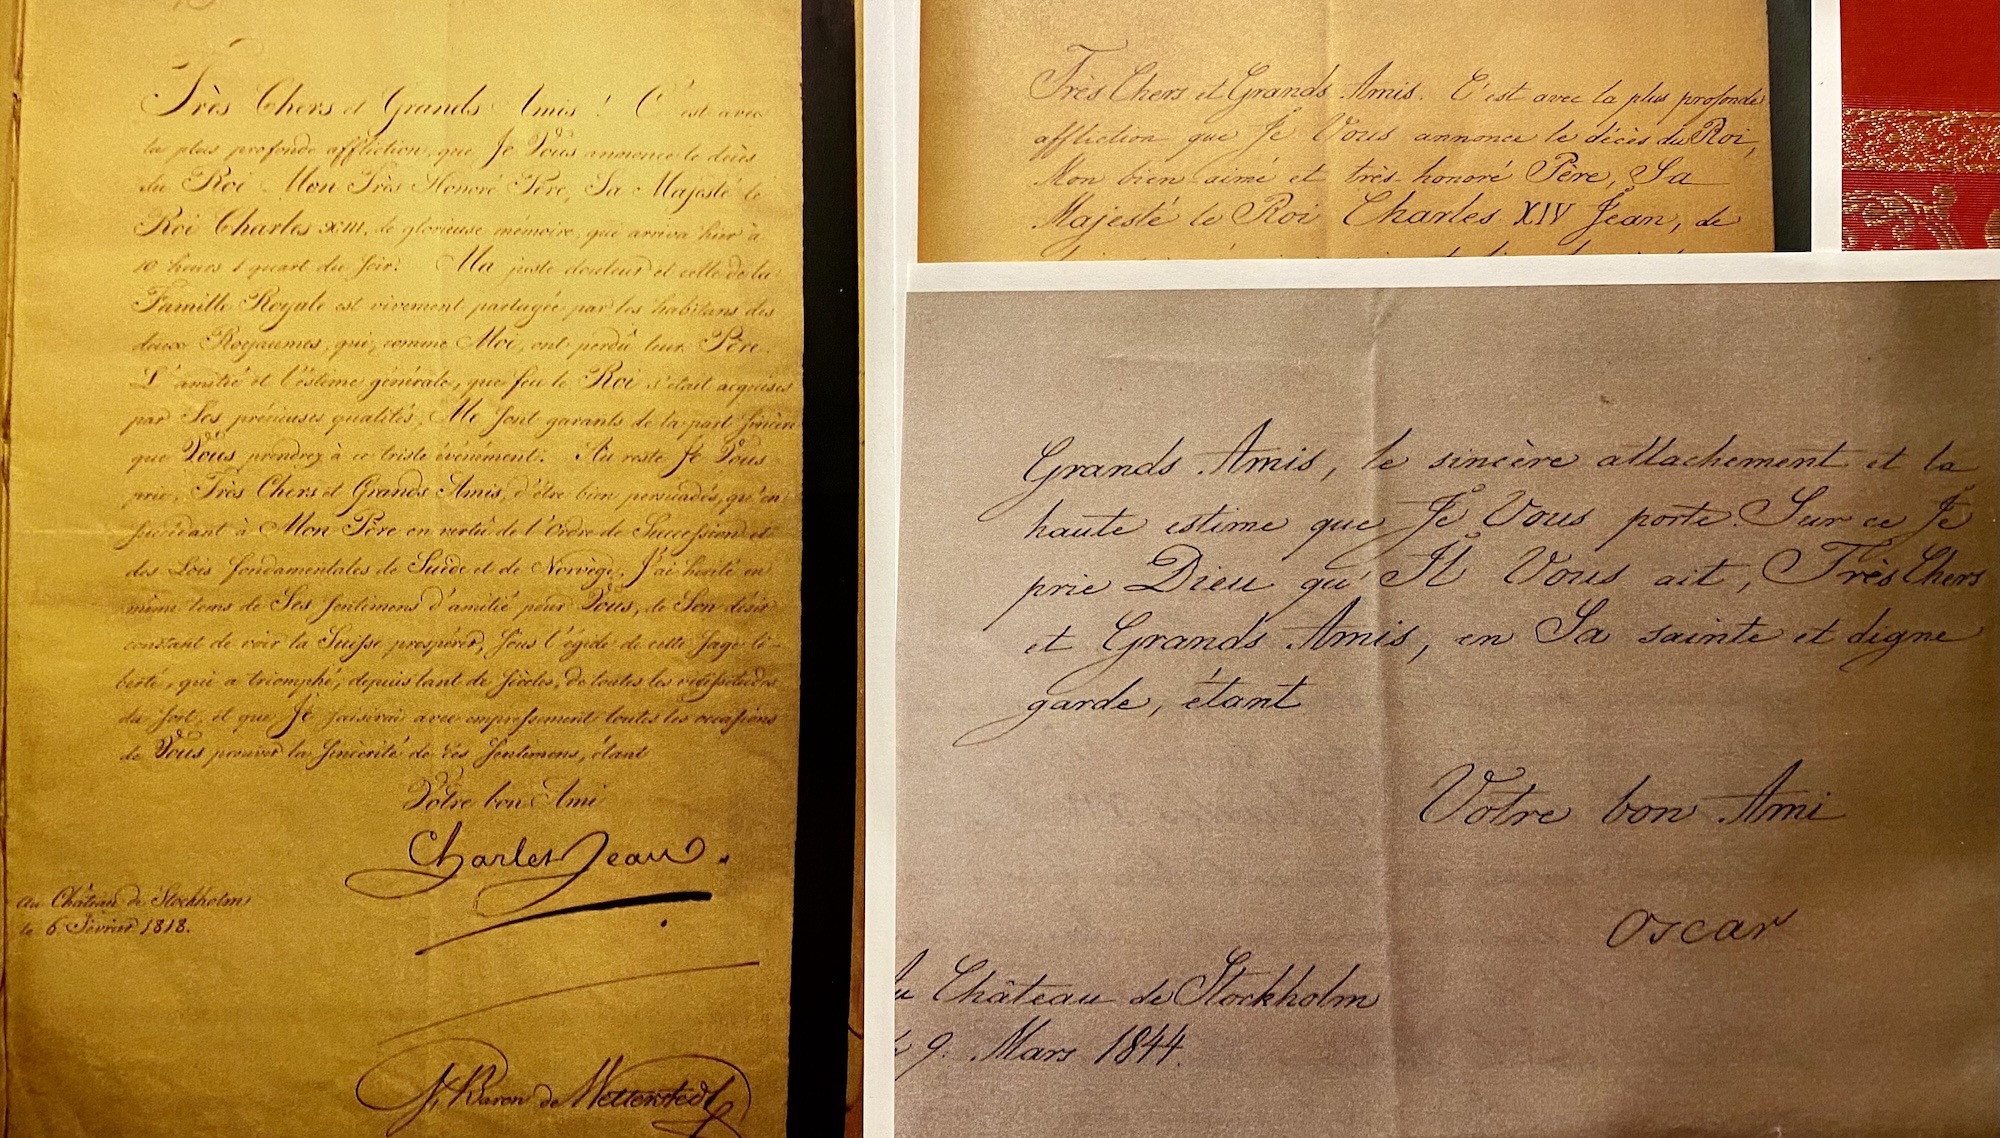 Très Chers et Grands Amis! C'est avec
la plus profonde affliction, que Je Vous annonce le décès
du Roi Mon Très Honoré Père, Sa Majesté le
Roi Charles XIII, de glorieuse mémoire, qui arriva hier à
10 heurs 1 quart du soir. Ma juste douleur et celle de la
Famille Royale est vivement partagée par les habitans des
deux Royaumes, qui, comme Moi, ont perdû leur Père.
L'amitié et l'éstime générale, que feu le Roi s'était acquises
par Ses précieuses qualités, Me sont garants de la part sincère
que Vous prendrez à ce triste événément. Au reste Je Vous
prie, Très Chers et Grands Amis, d'être bien persuadés, qu'en
succédant à Mon Père en vertû de l'Ordre de Succession et
des Lois fondamentales de Suède et de Norvège, J'ai hérité en
même tems de Ses sentimens d'amitié pour Vous, de Son désir
constant de voir la Suisse prospérer, sous l'égide de cette sage li-
berté, qui a triomphé, depuis tant de siècles, de toutes les vicissitudes
du sort, et que Je saisirai avec empressement toutes les occasions
de Vous prouver la sincérité de ces sentimens, étant
Votre bon Ami
Charles Jean.
Au Château de Stockholm
le 6 Février 1818.
Baron de Wetterstedt
Très Chers et Grands Amis. C'est avec la plus profonde
affliction que Je Vous annonce le décès du Roi,
Mon bien aimé et très honoré Père, Sa
Majesté le Roi Charles XIV Jean, de
Grands Amis, le sincère attachement et la
haute estime que Je Vous porte. Sur ce Je
prie Dieu qu'Il Vous ait, Très Chers
et Grands Amis, en Sa sainte et digne
garde, étant
Votre bon Ami
Oscar
Au Château de Stockholm
9. Mars 1844.